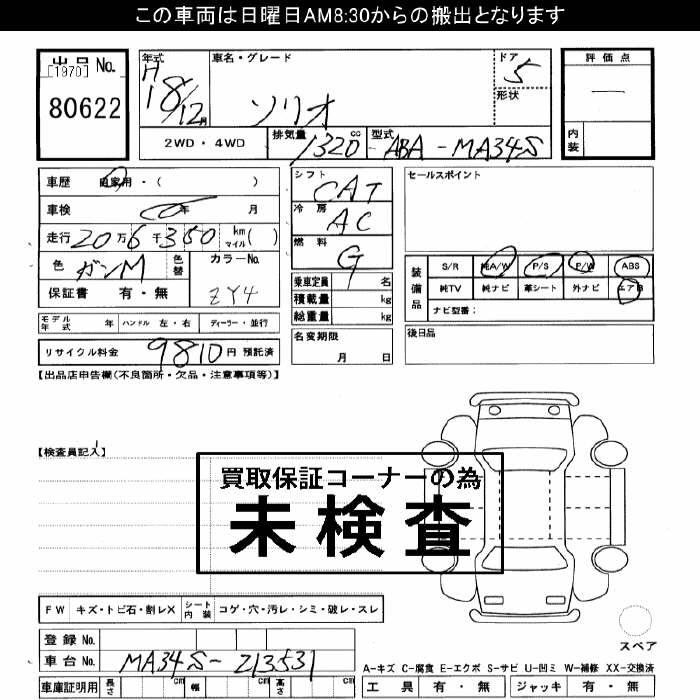 この車両は日曜日AM8:30からの搬出となります
出品No. [1970] 80622
年式 H18/12月
車名・グレード ソリオ
ドア 5 形状
評価点 — 内装
2WD・4WD 排気量 1320 cc 型式 ABA-MA34S
車歴 自家用・( )
車検 年 月
走行 20万6千350 km マイル( )
色 ガンM 色替 カラーNo. ZY4
保証書 有・無
モデル年式 年 ハンドル 左・右 ディーラー・並行
リサイクル料金 9810円 預託済
シフト CAT
冷房 AC
燃料 G
乗車定員 名
積載量 kg
総重量 kg
名変期限 月 日
セールスポイント
装備品 S/R 純A/W P/S P/W ABS
純TV 純ナビ 革シート 外ナビ エアB
ナビ型番:
後日品
【出品店申告欄(不良箇所・欠品・注意事項等)】
【検査員記入】
買取保証コーナーの為
未検査
FW キズ・トビ石・割レX シート内装 コゲ・穴・汚レ・シミ・破レ・スレ
登録No.
車台No. MA34S-213531
車庫証明用 長さ cm 幅 cm 高さ cm
スペア
A-キズ C-腐食 E-エクボ S-サビ U-凹ミ W-補修 XX-交換済
工具 有・無 ジャッキ 有・無